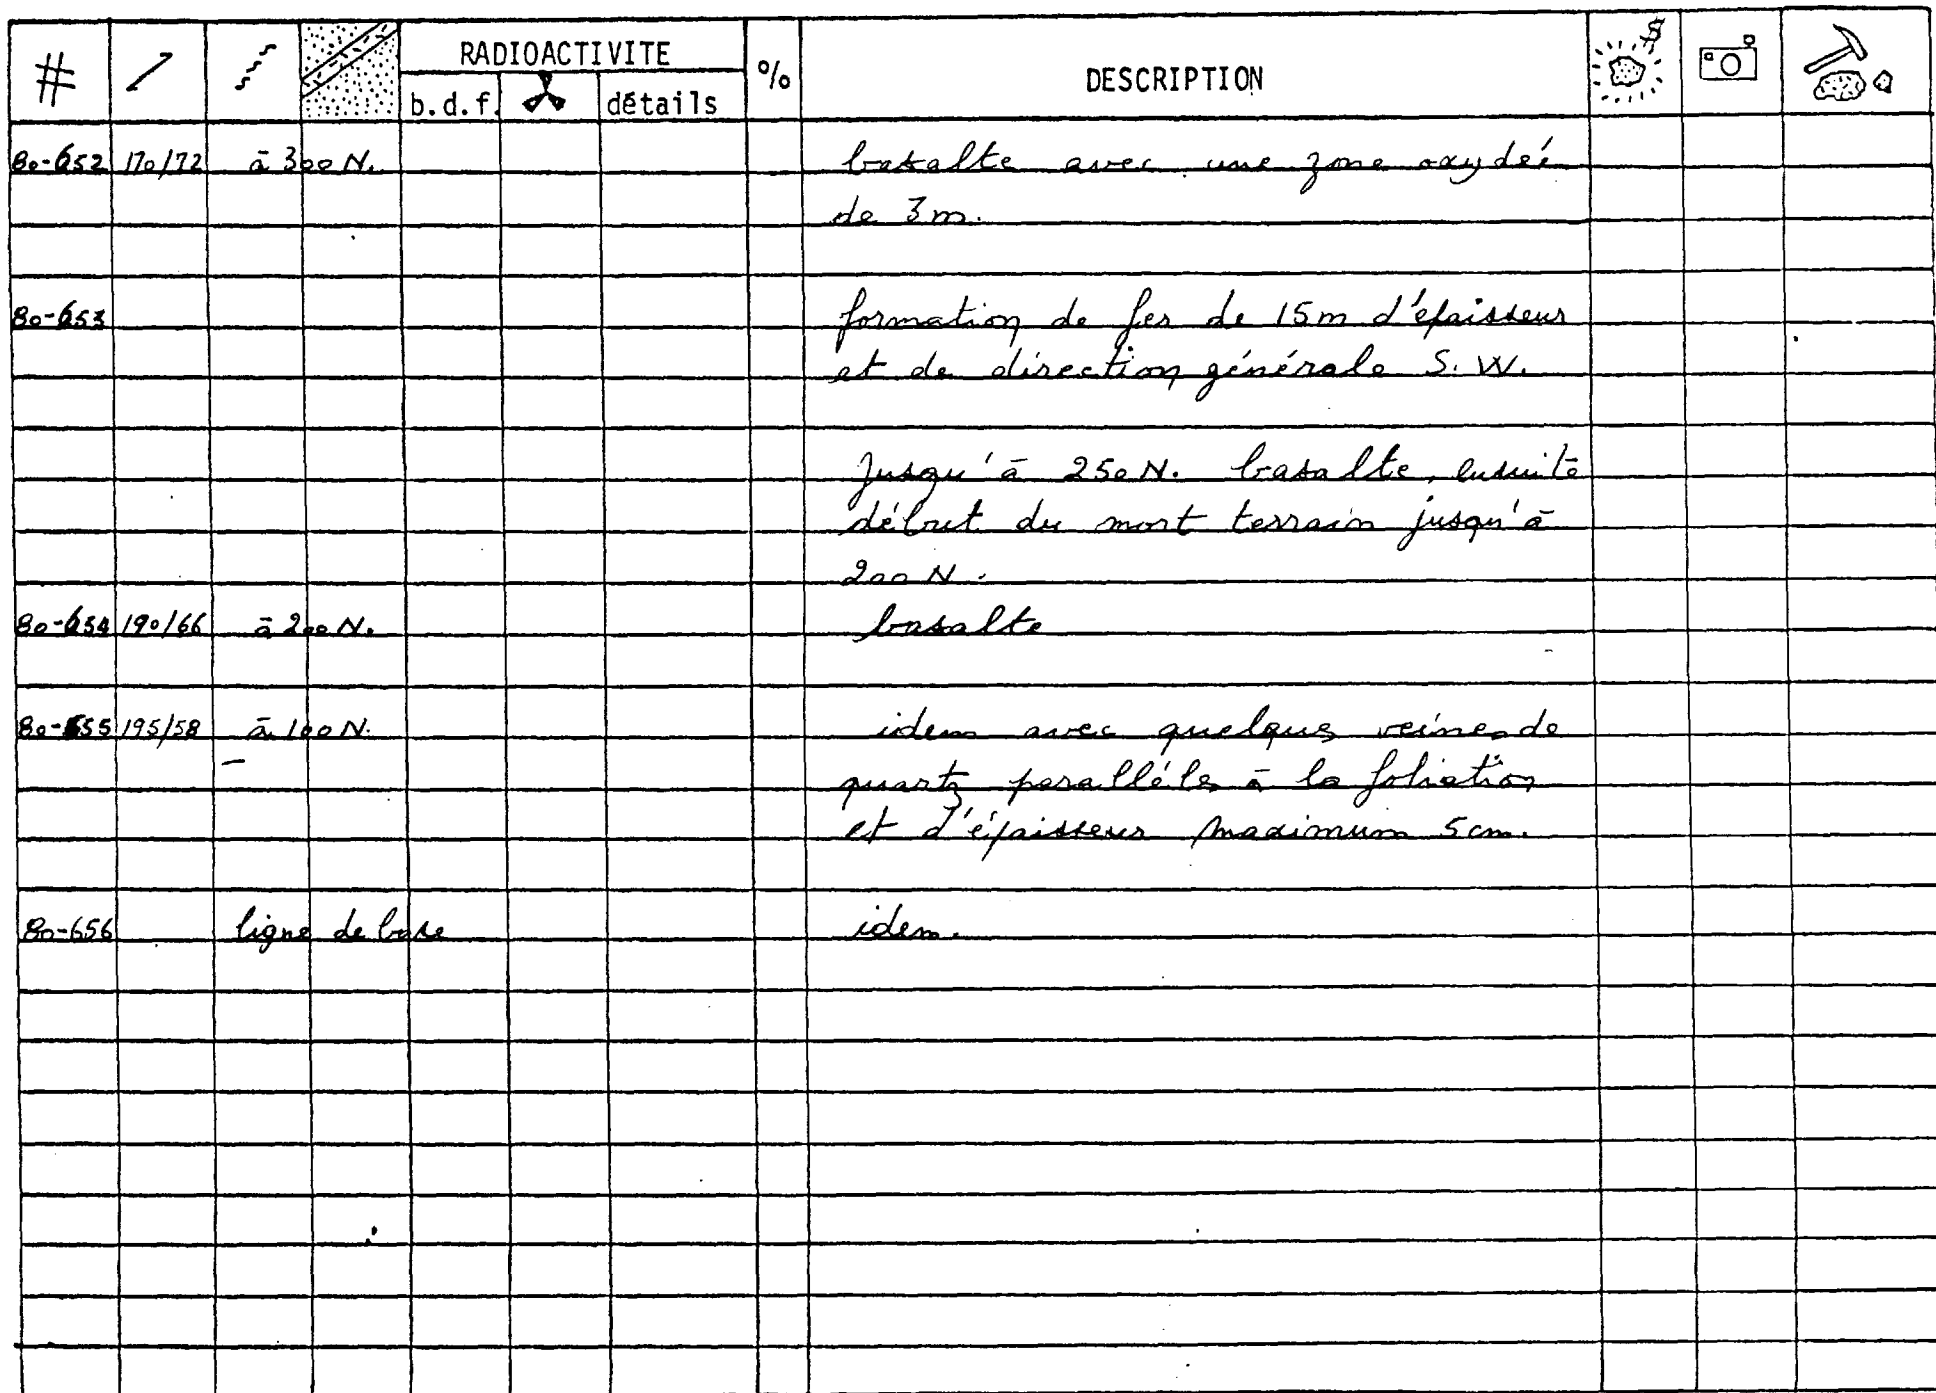 # RADIOACTIVITE % DESCRIPTION $
b.d.f. détails
80-652 170/72 à 300 N. basalte avec une zone oxydée
de 3m.
80-653 formation de fer de 15m d'épaisseur
et de direction générale S. W.
Jusqu'à 250 N. basalte, ensuite
début du mort terrain jusqu'à
200 N.
80-654 190/66 à 200 N. basalte
80-655 195/58 à 100 N. idem avec quelques veines de
quartz parallèles à la foliation
et d'épaisseur maximum 5 cm.
80-656 ligne de base idem.